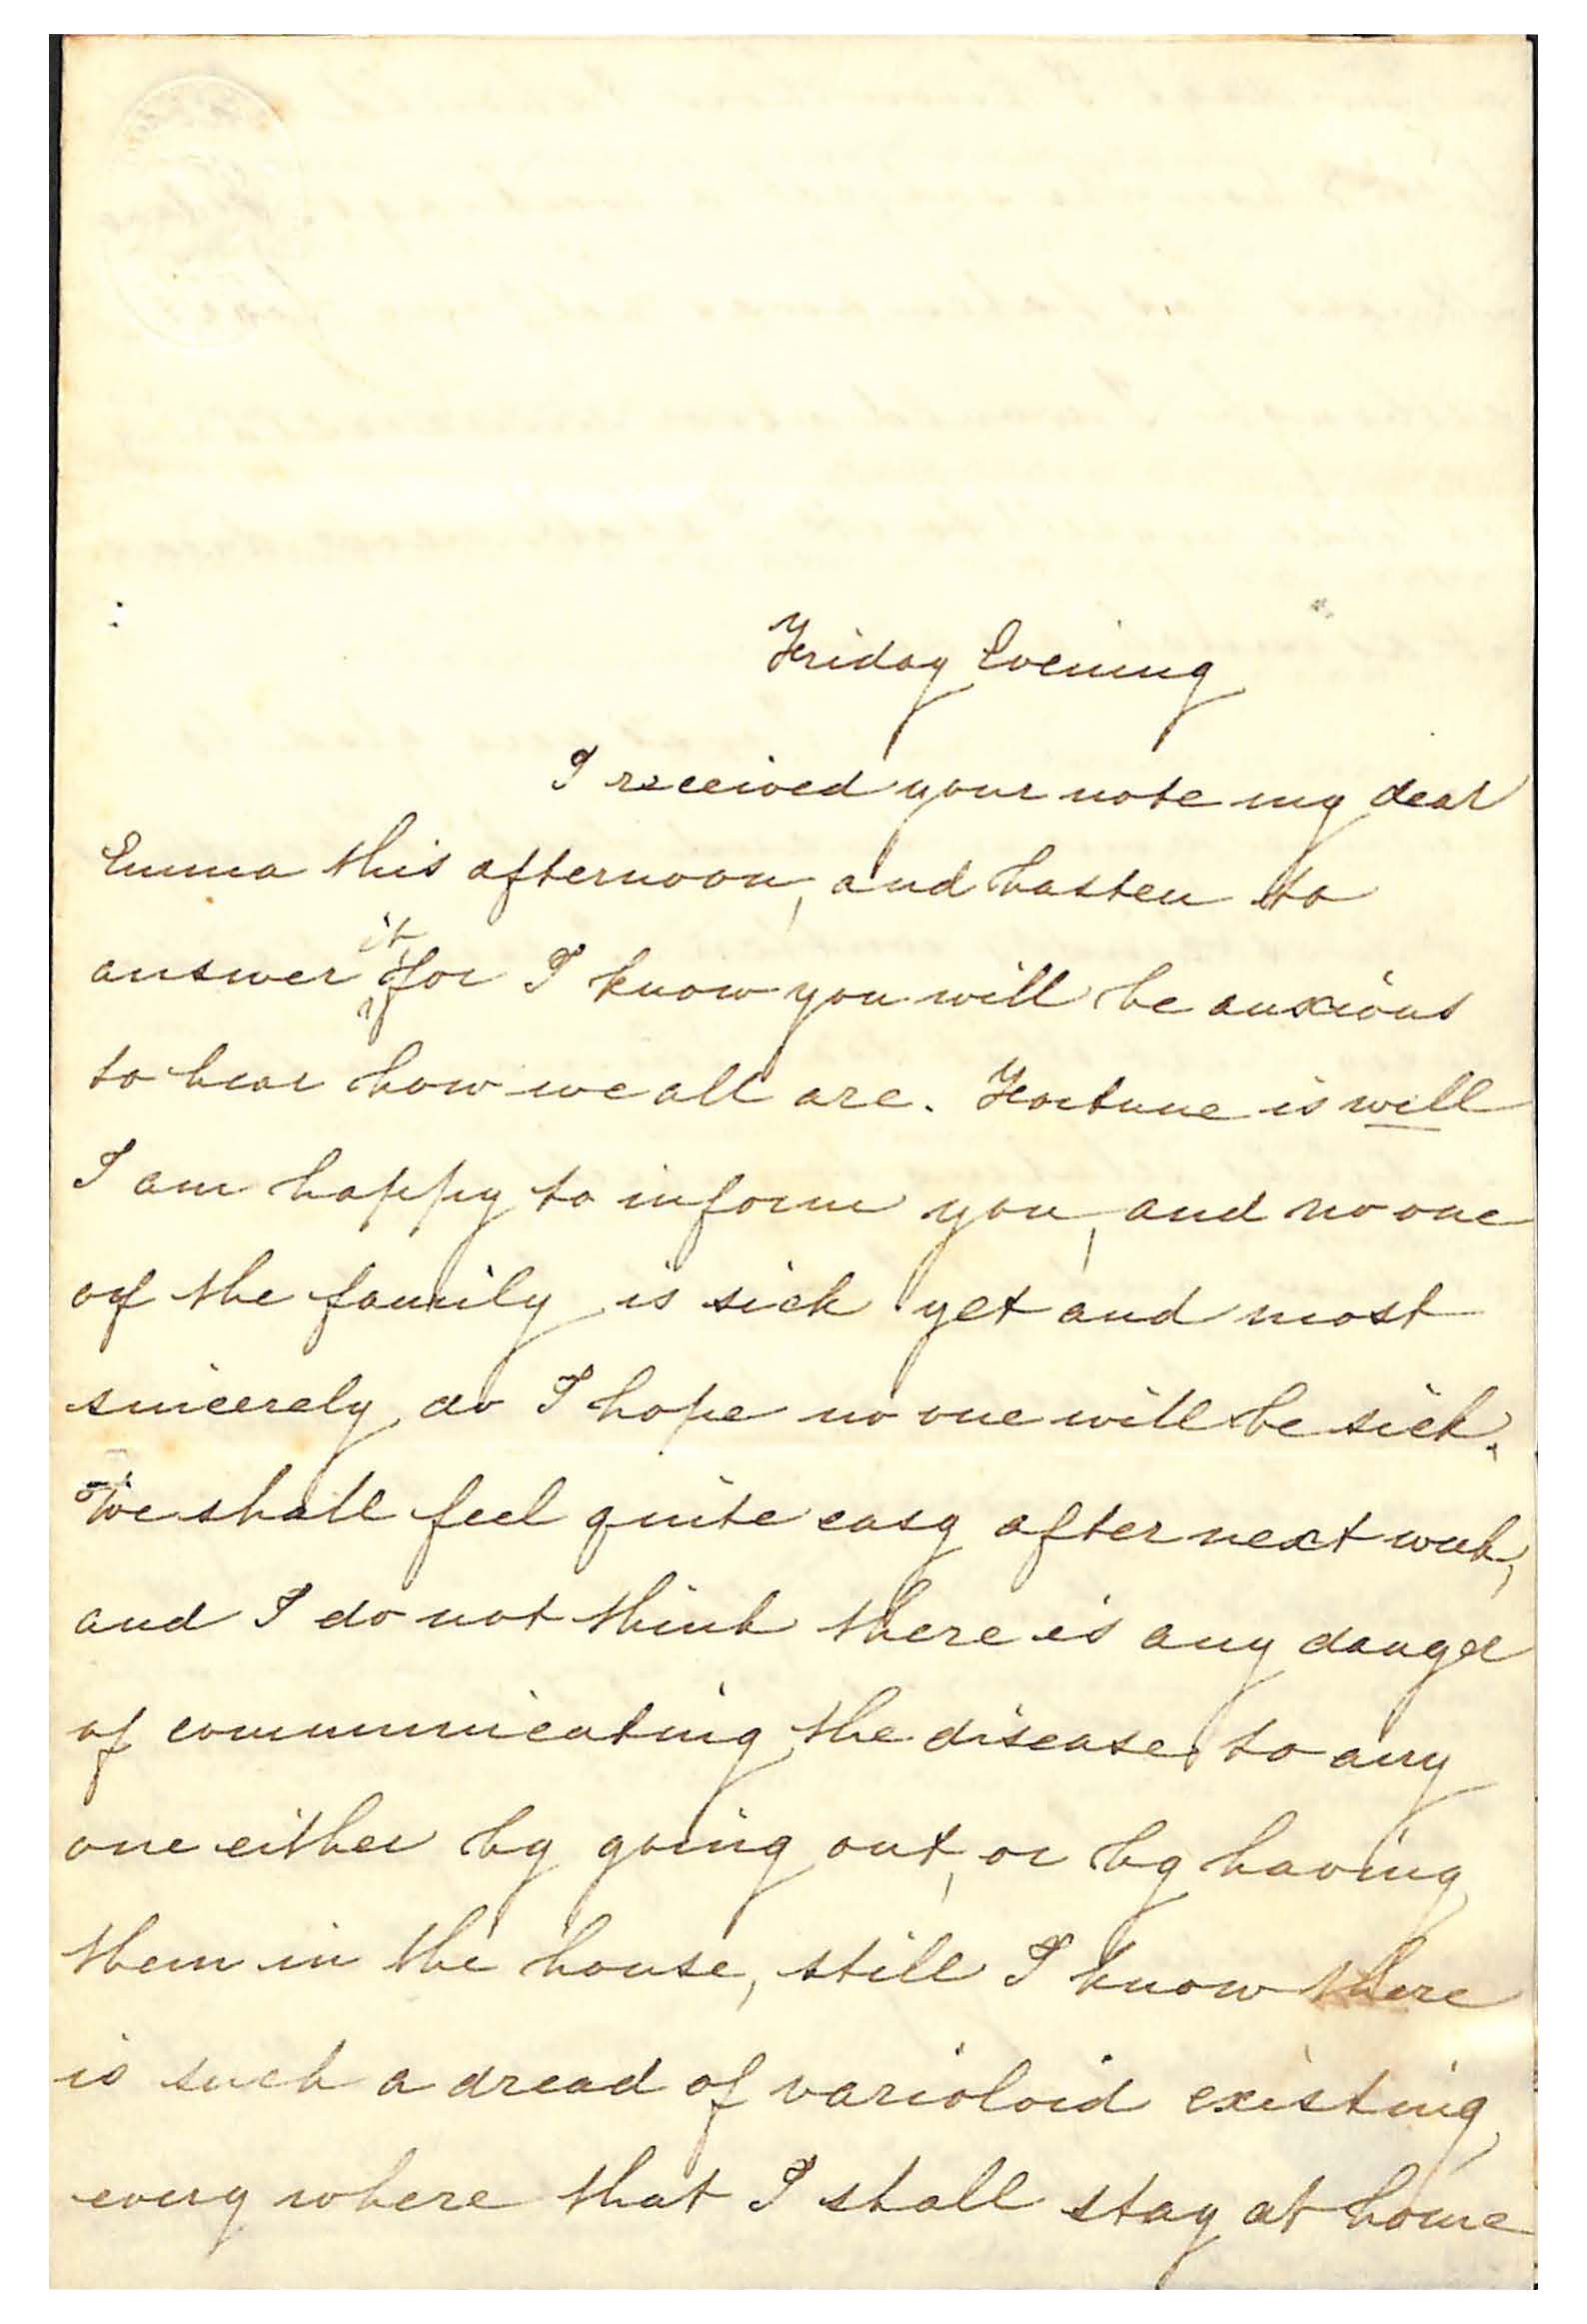 Friday Evening
I received your note my dear
Emma this afternoon, and hasten to
answer it for I know you will be anxious
to hear how we all are. Fortune is well
I am happy to inform you, and no one
of the family is sick yet and most
sincerely do I hope no one will be sick.
We shall feel quite easy after next week,
and I do not think there is any danger
of communicating the disease to any
one either by going out, or by having
them in the house, still I know there
is such a dread of varioloid existing
every where that I shall stay at home